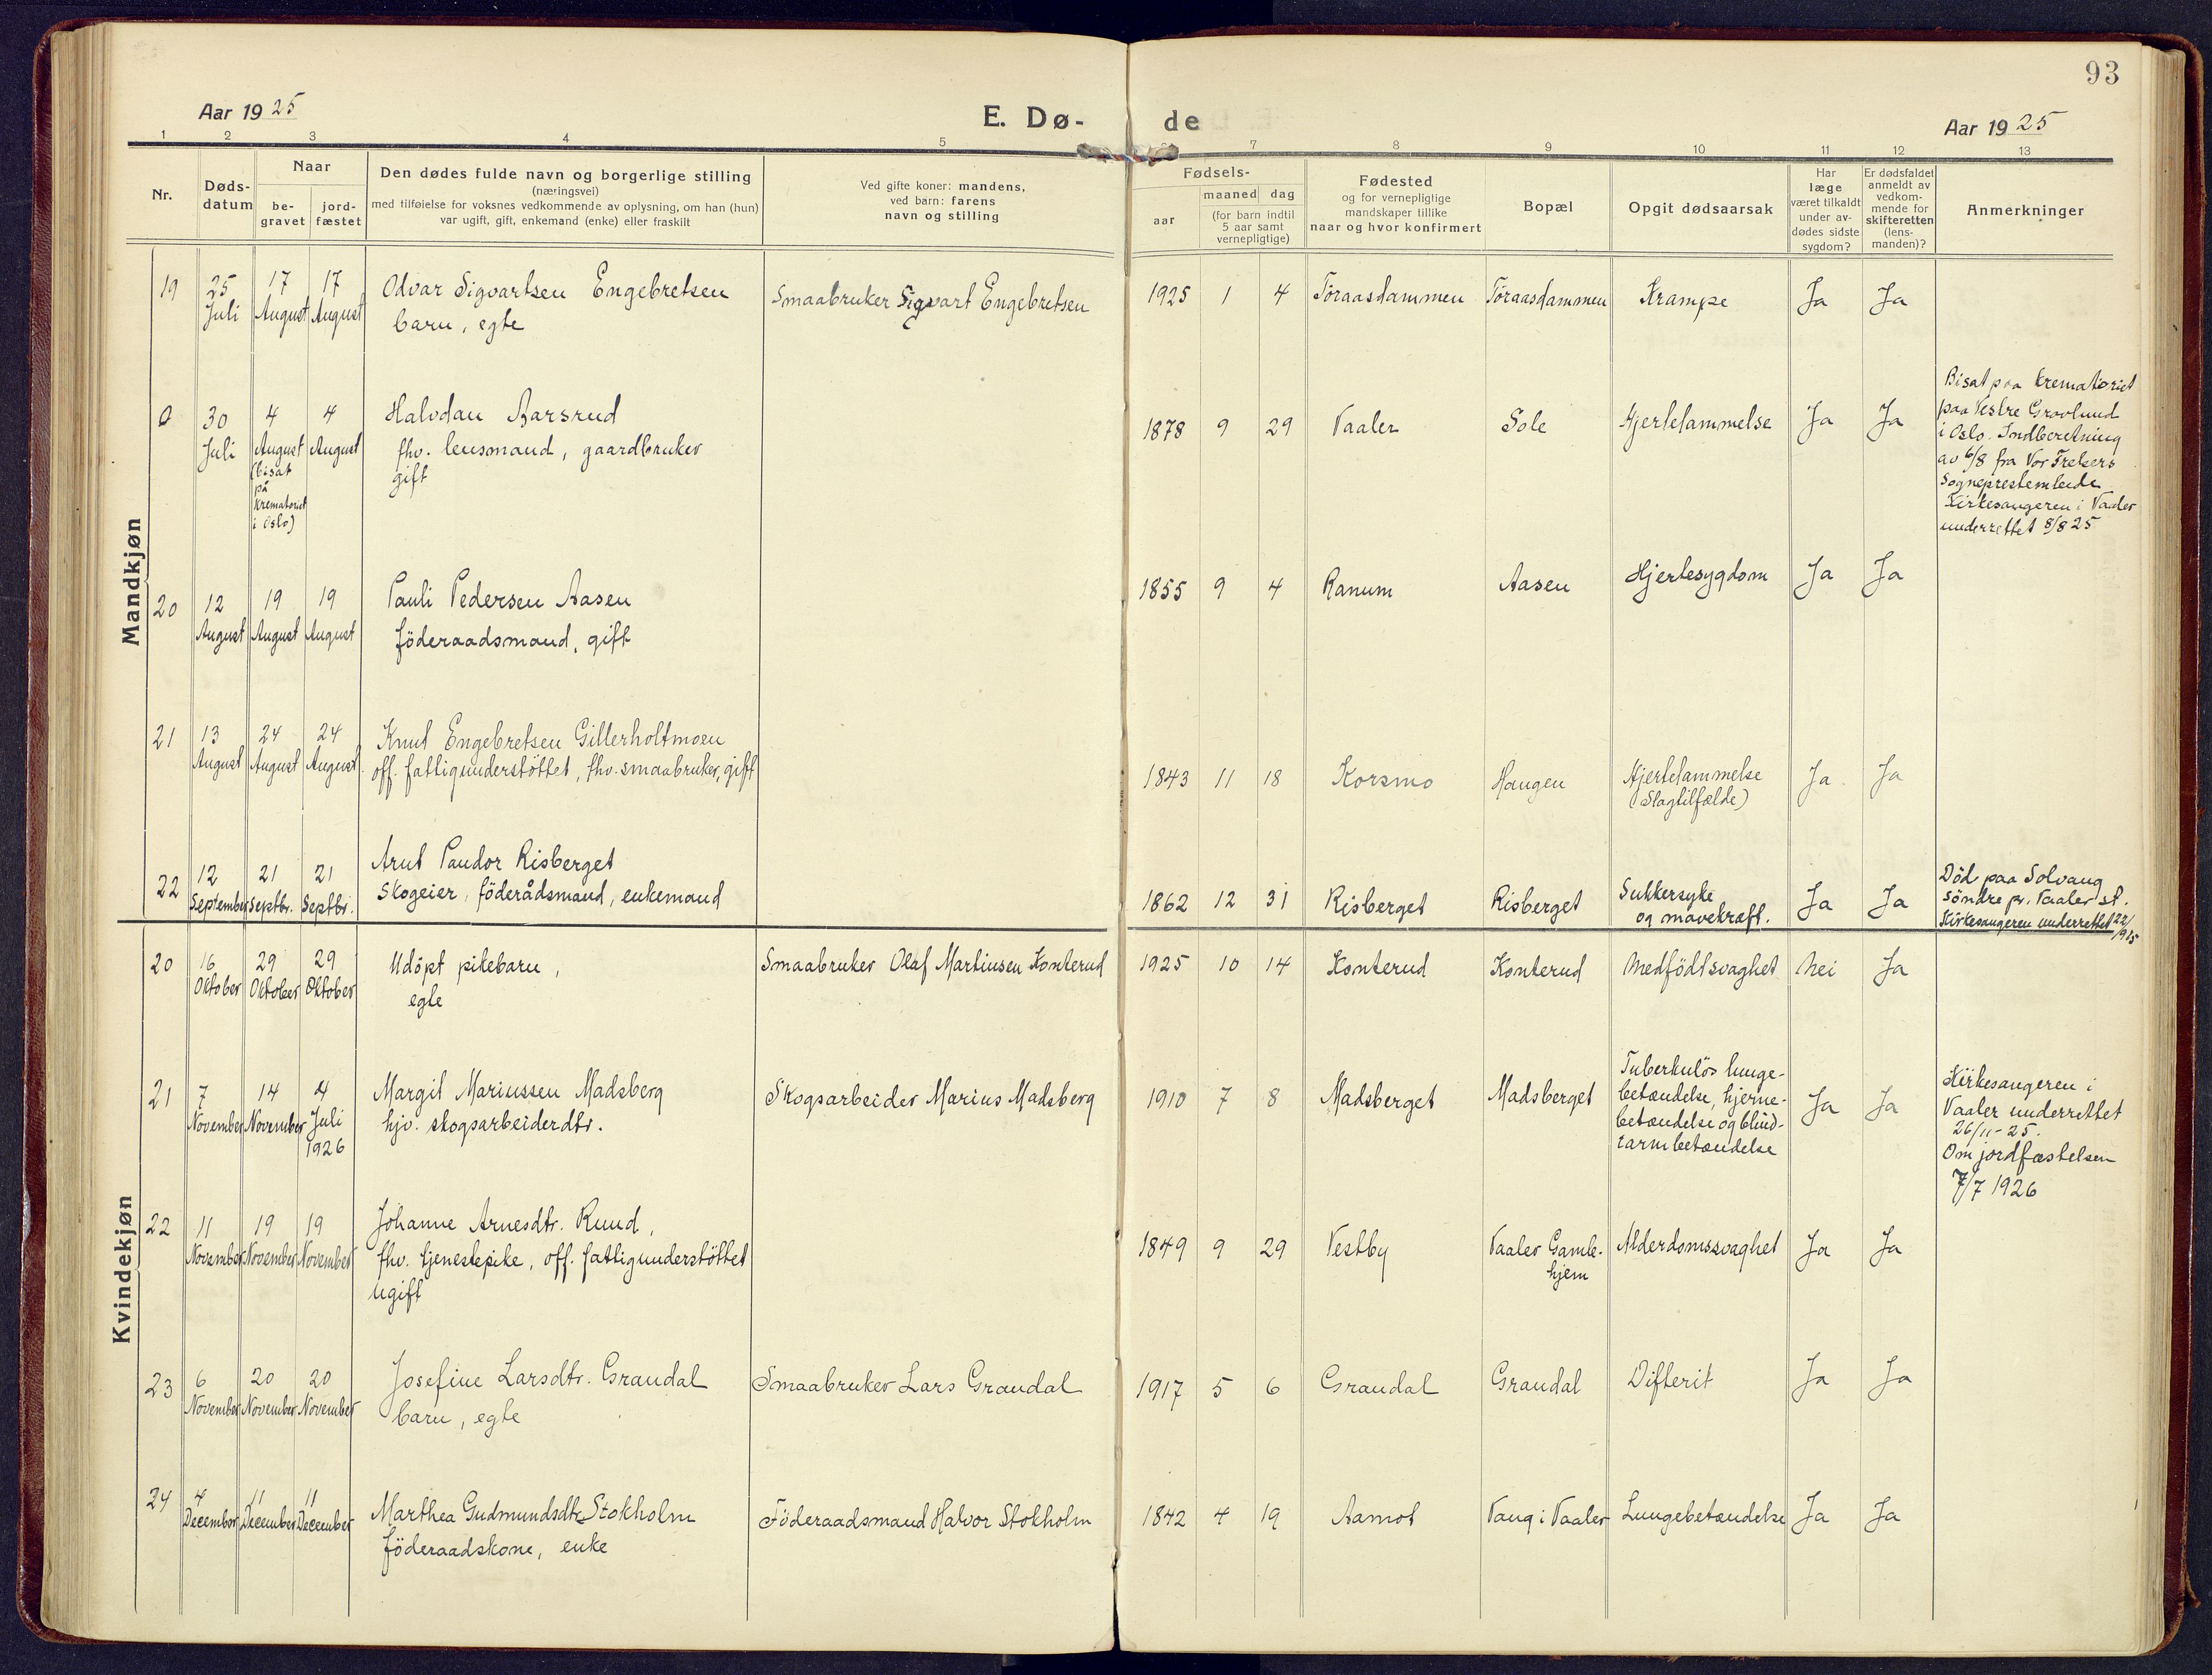 93
Aar 1925
E. Dø-
de
Aar 1925
1 2 3 4 5 7 8 9 10 11 12 13
Nr.
Døds-
datum
Naar
be-
gravet
jord-
fæstet
Den dødes fulde navn og borgerlige stilling
(næringsvei)
med tilføielse for voksnes vedkommende av oplysning, om han (hun)
var ugift, gift, enkemand (enke) eller fraskilt
Ved gifte koner: mandens,
ved barn: farens
navn og stilling
Fødsels-
aar
maaned dag
(for barn indtil
5 aar samt
vernepligtige)
Fødested
og for vernepligtige
mandskaper tillike
naar og hvor konfirmert
Bopæl
Opgit dødsaarsak
Har
læge
været tilkaldt
under av-
dødes sidste
sygdom?
Er dødsfaldet
anmeldt av
vedkom-
mende for
skifteretten
(lens-
manden)?
Anmerkninger
Mandkjøn
19
25
Juli
17
August
17
August
Odvar Sigvartsen Engebretsen
barn, egte
Smaabruker Sigvart Engebretsen
1925 1 4
Töraasdammen
Töraasdammen
Krampe
Ja
Ja
0
30
Juli
4
August
(bisat
på
Krematoriet
i Oslo)
4
August
Halvdan Aarsrud
fhv. lensmand, gaardbruker
gift
1878 9 29
Vaaler
Sole
Hjertelammelse
Ja
Ja
Bisat paa Krematoriet
paa Vestre Gravlund
i Oslo. Indberetning
av 6/8 fra Vor Frelsers
Sogneprestembede
Kirkesangeren i Vaaler
underrettet 8/8 25
20
12
August
19
August
19
August
Pauli Pedersen Aasen
föderaadsmand, gift
1855 9 4
Ranum
Aasen
Hjertesygdom
Ja
Ja
21
13
August
24
August
24
August
Knut Engebretsen Gillerholtmoen
off. fattigunderstöttet, fhv. smaabruker, gift
1843 11 18
Korsmo
Haugen
Hjertelammelse
(Slagtilfælde)
Ja
Ja
22
12
September
21
Septbr.
21
Septbr.
Arnt Pandor Risberget
Skogeier, föderådsmand, enkemand
1862 12 31
Risberget
Risberget
Sukkersyke
og mavekræft.
Ja
Ja
Död paa Solvang
söndre pr. Vaaler st.
Kirkesangeren underrettet 22/
/9 25
Kvindekjøn
20
16
Oktober
29
Oktober
29
Oktober
Udöpt pikebarn,
egte
Smaabruker Olaf Martinsen Konterud
1925 10 14
Konterud
Konterud
Medfödt svaghet
Nei
Ja
21
7
November
14
November
4
Juli
1926
Margit Mariussen Madsberg
hjv. skogsarbeiderdtr.
Skogsarbeider Marius Madsberg
1910 7 8
Madsberget
Madsberget
Tuberkulös lunge-
betændelse, hjerne-
betændelse og blind-
tarmbetændelse
Ja
Ja
Kirkesangeren i
Vaaler underrettet
26/11-25.
Om jordfæstelsen
7/7 1926
22
11
November
19
November
19
November
Johanne Arnesdtr. Ruud,
fhv. tjenestepike, off. fattigunderstöttet
ugift
1849 9 29
Vestby
Vaaler Gamle-
hjem
Alderdomssvaghet
Ja
Ja
23
6
November
20
November
20
November
Josefine Larsdtr. Grandal
barn, egte
Smaabruker Lars Grandal
1917 5 6
Grandal
Grandal
Difterit
Ja
Ja
24
4
December
11
December
11
December
Marthea Gudmundsdtr. Stokholm
föderaadskone, enke
Föderaadsmand Halvor Stokholm
1842 4 19
Aamot
Vang i Vaaler
Lungebetændelse
Ja
Ja